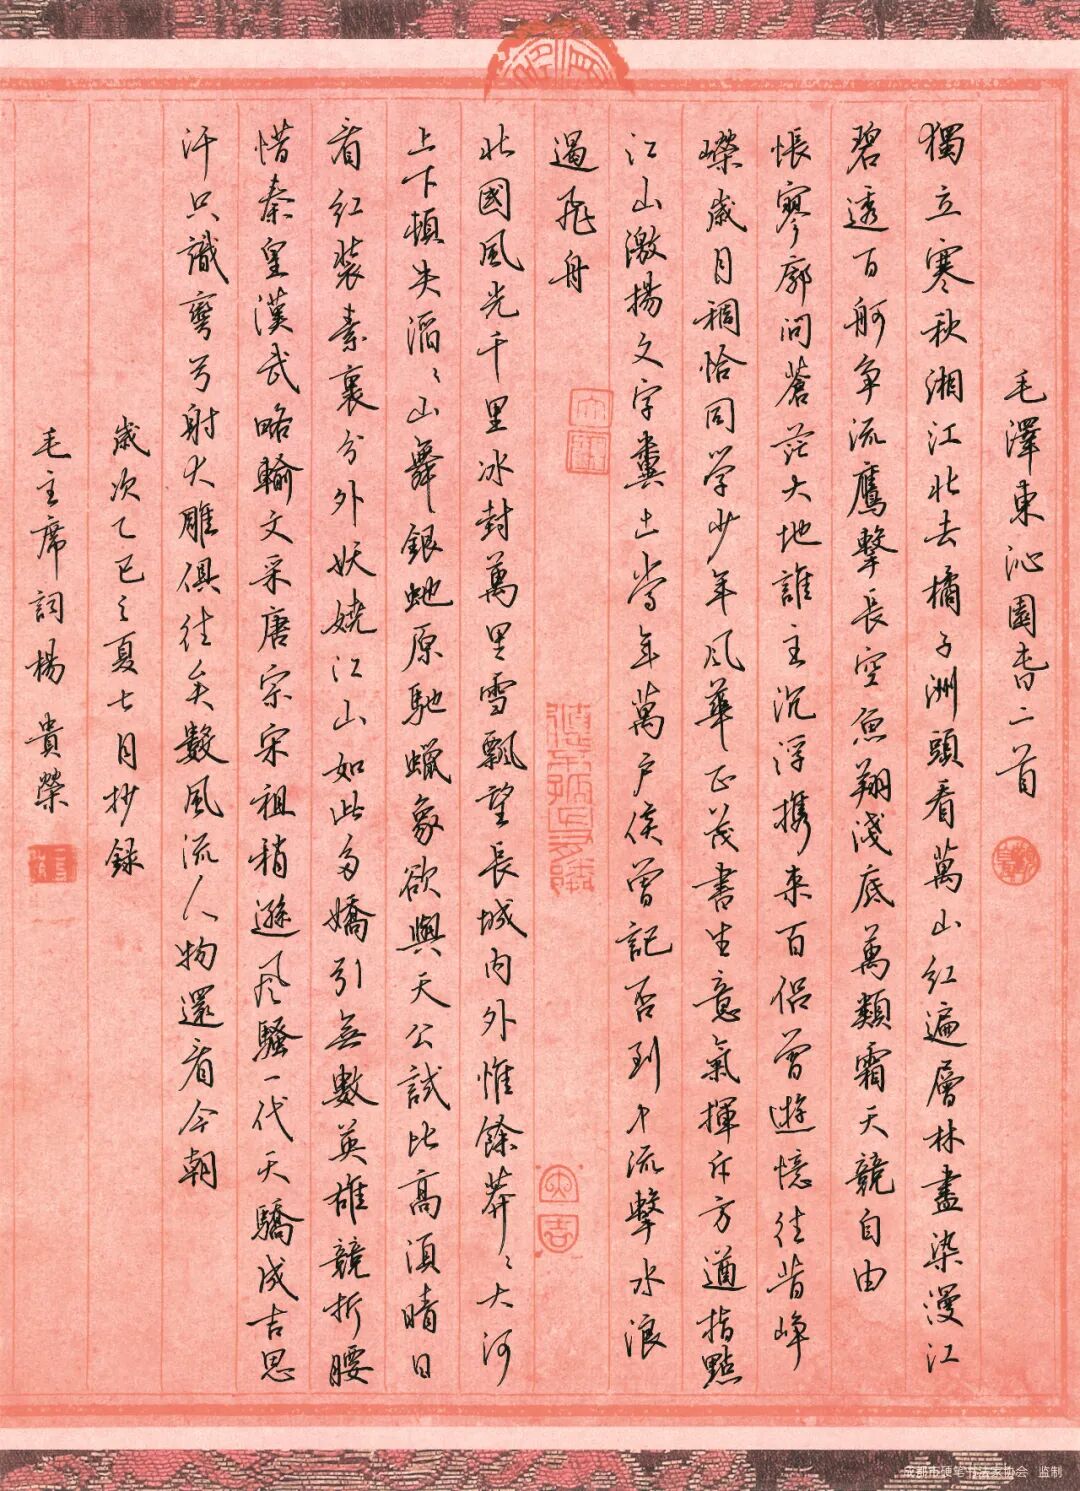 毛澤東沁園春二首
獨立寒秋湘江北去橘子洲頭看萬山紅遍層林盡染漫江
碧透百舸争流鷹擊長空魚翔淺底萬類霜天競自由
悵寥廓問蒼茫大地誰主沉浮携来百侣曾遊憶往昔崢
嶸歲月稠恰同学少年風華正茂書生意氣揮斥方遒指點
江山激揚文字糞土當年萬户侯曾記否到中流擊水浪
遏飛舟
北國風光千里冰封萬里雪飄望長城内外惟餘莽〻大河
上下頓失滔〻山舞銀虵原馳蠟象欲與天公試比高須晴日
看紅裝素裹分外妖嬈江山如此多嬌引無數英雄競折腰
惜秦皇漢武略輸文采唐宗宋祖稍遜風騷一代天驕成吉思
汗只識彎弓射大雕俱往矣數風流人物還看今朝
歲次乙巳之夏七月抄録
毛主席詞楊貴榮
成都市硬笔书法家协会 监制